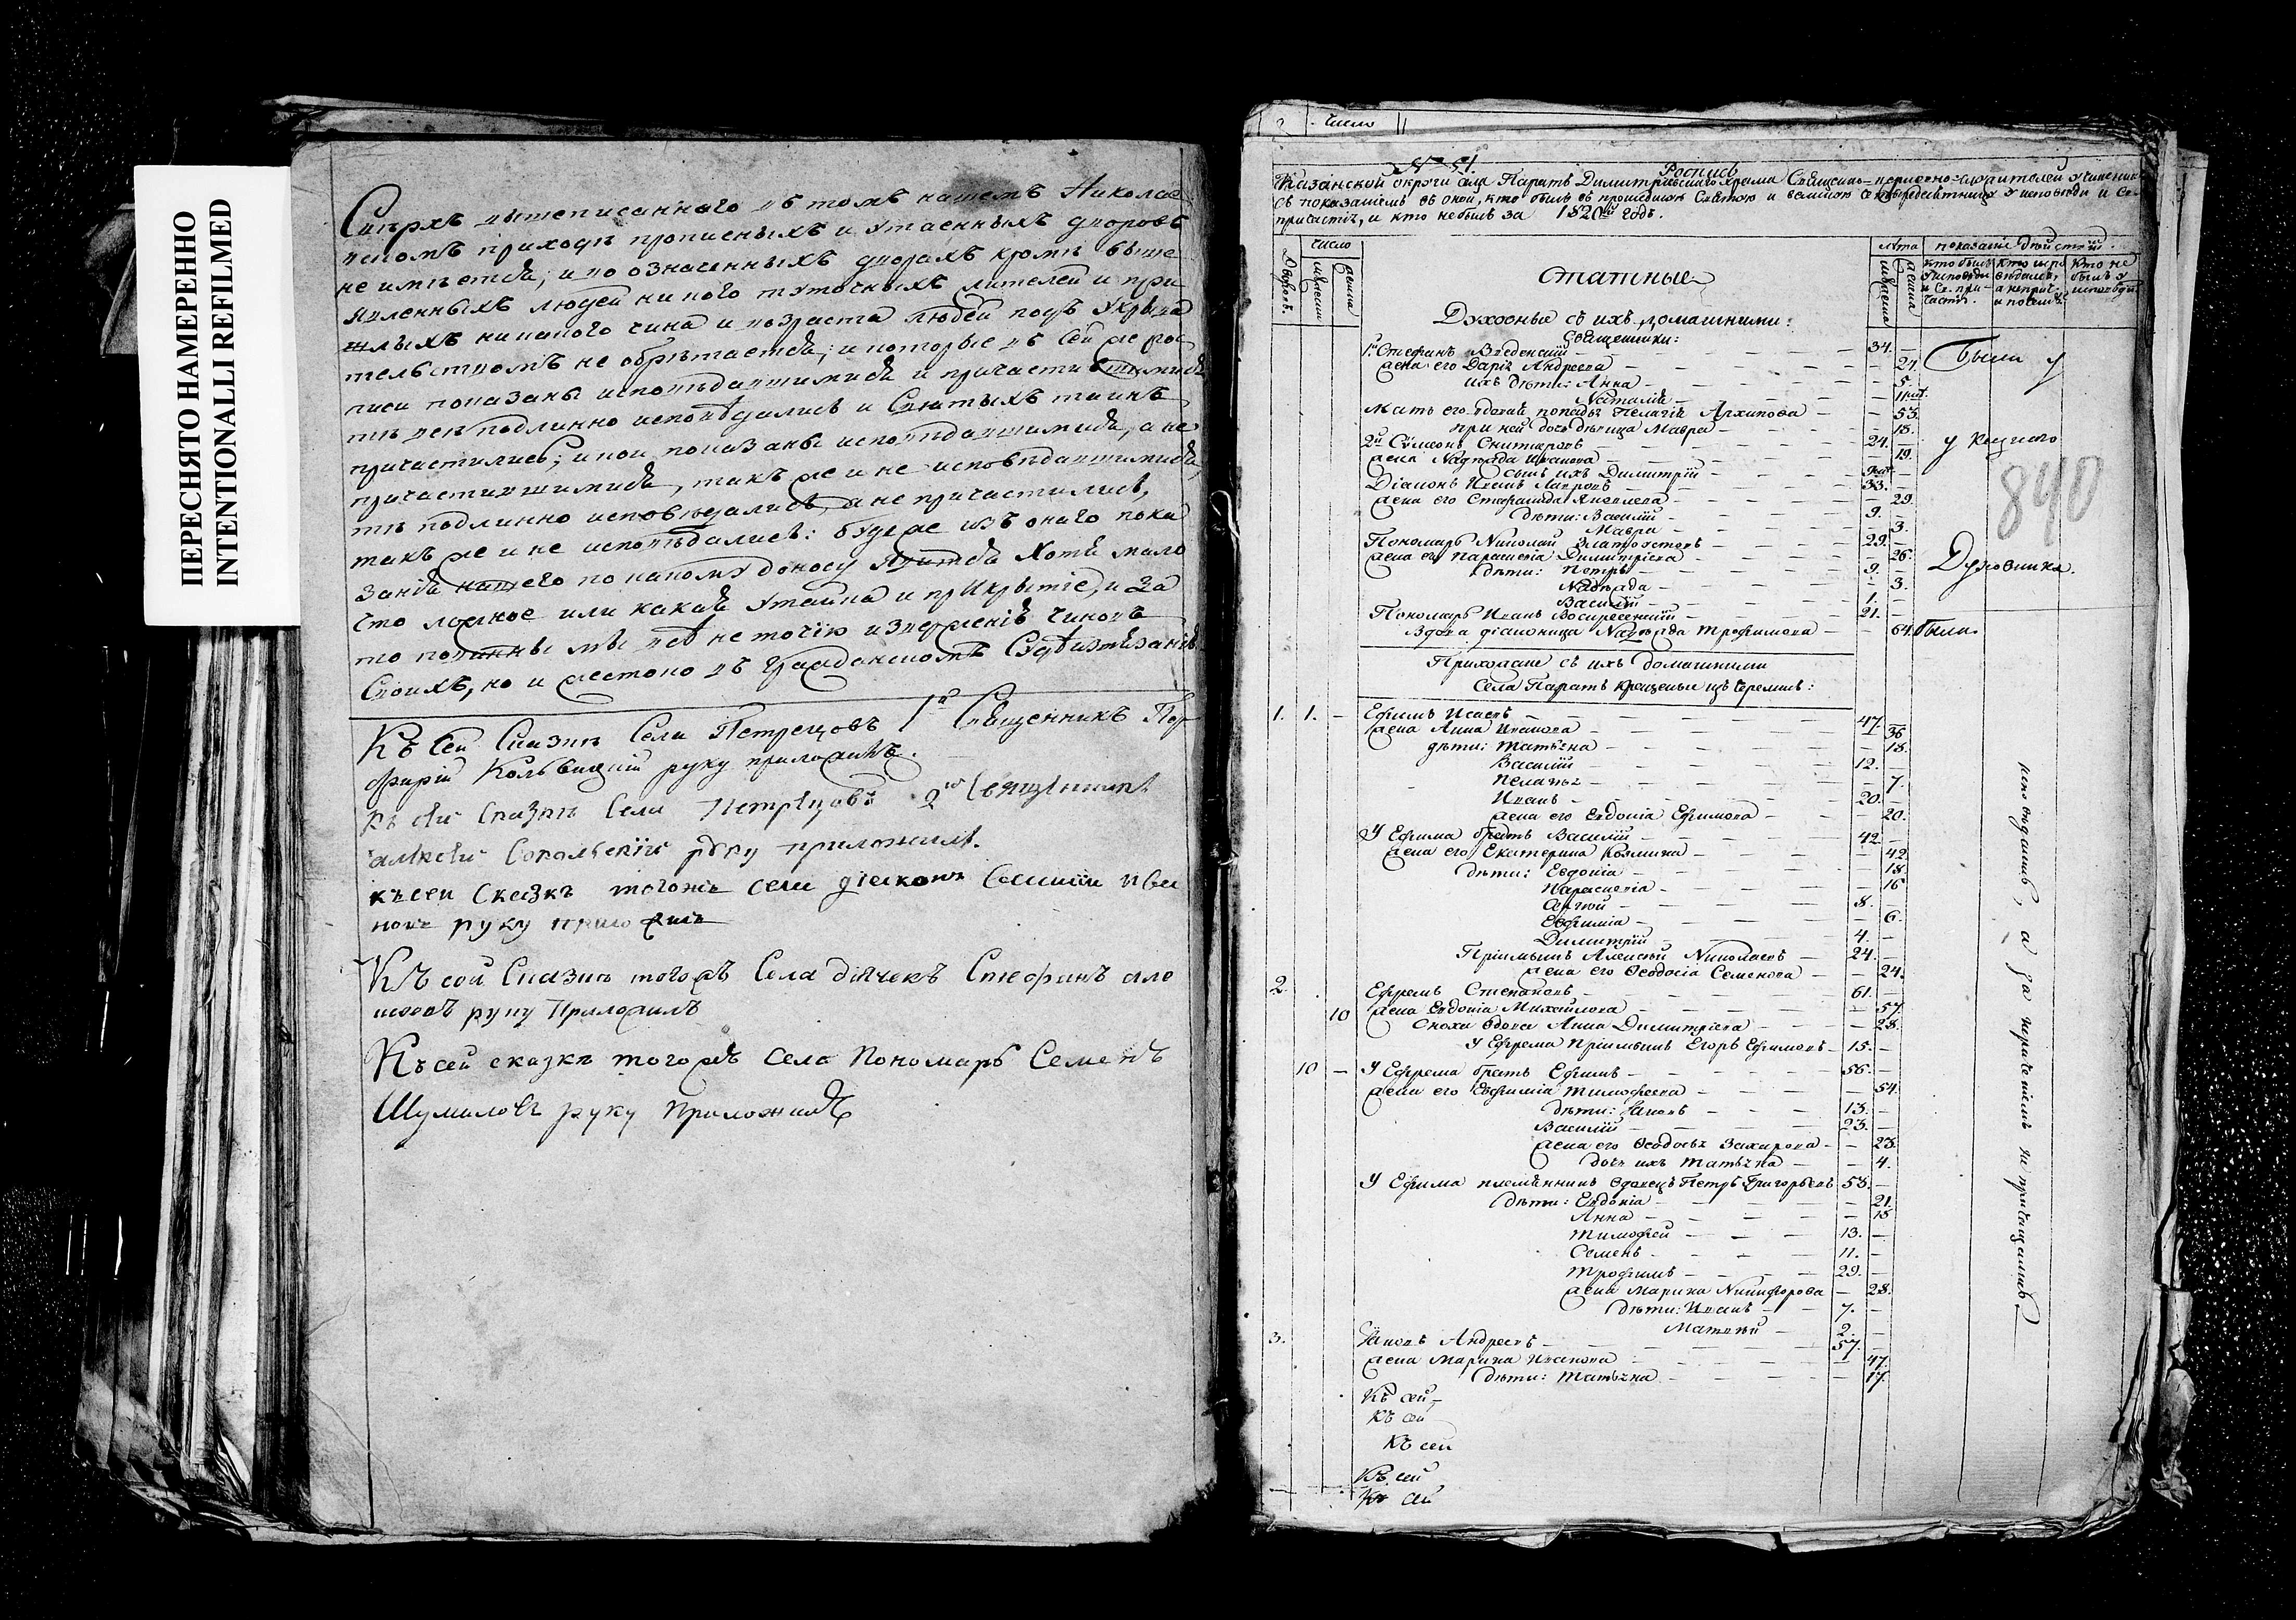 ПЕРЕСНЯТО НАМЕРЕННО
INTENTIONALLI REFILMED
Сверхъ вышеписаннаго въ томъ нашемъ Николае
вскомъ приходѣ прописныхъ и утаенныхъ дворовъ
не имѣется; и во означенныхъ дворахъ кромѣ выше
явленныхъ людей ни кого туточныхъ жителей и при
шлыхъ никакого чина и возраста людей подъ укрыва
тельствомъ не обрѣтается; и которые въ сей же рос
писи показаны исповѣдавшимися и причастившимися
тѣ всѣ подлинно исповѣдались и Святыхъ таинъ
причастились; а кои показаны исповѣдавшимися, а не
причастившимися, такъ же и не исповѣдавшимися,
тѣ подлинно исповѣдались, а не причастились,
такъ же и не исповѣдались: буде же изъ онаго пока
занія нашего по какому доносу явится хотя мало
что ложное или какая утайка и прикрытіе, и за
то повинны мы всѣ не точію изверженія чиновъ
своихъ, но и жестоко въ гражданскомъ судѣ истязанія
Къ сей Сказкѣ Села Петрецовъ 1й Священникъ Пор
фирій руку приложилъ.
къ сей сказкѣ Села Петрецовъ 2й Священникъ
Алексѣй Сокольскій руку приложилъ.
къ сей Сказкѣ тогожъ села діаконъ Ива
новъ руку приложилъ
Къ сей Сказкѣ тогожъ Села дьячекъ Стефанъ Але
руку Приложилъ
Къ сей сказкѣ тогожъ села Пономарь Семенъ
Шумиловъ руку приложилъ
число
№ 51.
Роспись
Казанской округи села Паратъ Димитріевскаго храма Священно-церковно-служителей учиненная
съ показаніемъ въ оной, кто былъ въ прошедшую Святую и великую Четыредесятницу у исповѣди и Св.
причастія, и кто небылъ за 1820й годъ.
Дворовъ. число мужеска женска
лѣта мужеска женска
показаніе дѣйствій.
кто былъ у исповѣди и Св. причастія.
кто исповѣдался, а непричас. и почему.
кто не былъ у исповѣди
статные
Духовные съ ихъ домашними:
Священники:
1й Стефанъ Введенскій — 34. —
жена его Дарія Андреева — — 24.
ихъ дѣти: Анна — — 5.
Наталія —
Мать его вдовая попадья Пелагія Архипова — — 53.
при ней дочь дѣвица Мавра — — 18.
2й Сѵмеонъ — 24. —
жена Надежда Иванова — — 19.
сынъ ихъ Димитрій —
Діаконъ Иванъ Лавровъ — 33. —
жена его Стефанида Яковлева — — 29.
дѣти: Василій — 9. —
Мавра — — 3.
Пономарь Николай Златоустовъ — 29. —
жена его Парасковія Димитріева — — 26.
дѣти: Петръ — 9. —
Надежда — — 3.
Василій — 1. —
Пономарь Иванъ Воскресенскій — 21. —
Вдова діаконица Надежда Трофимова — — 64.
Были у
у
840
Духовника.
были
Прихожане съ ихъ домашними
Села Паратъ крещеные изъ черемисъ:
1. 1. — Ефимъ Исаевъ — 47. —
жена Анна Иванова — — 36
дѣти: Татьяна — — 18.
Василій — 12. —
Пелагья — — 7.
Иванъ — 20. —
жена его Евдокія Ефимова — — 20.
У Ефима братъ Василій — 42. —
жена его Екатерина Козмина — — 42.
дѣти: Евдокія — — 18.
Параскевія — — 16
Сергѣй — 8. —
Евфимія — — 6.
Димитрій — 4. —
Пріимышъ Алексѣй Николаевъ — 24. —
жена его Ѳеодосія Семенова — — 24.
2. Ефремъ Степановъ — 61. —
10 жена Евдокія Михайлова — — 57.
сноха вдова Анна Димитріева — — 28.
У Ефрема пріимышъ Егоръ Ефимовъ — 15. —
10 — У Ефрема братъ Ефимъ — 56. —
жена его Евфимія Тимофеева — — 54.
дѣти: Яковъ — 13. —
Василій — 23. —
жена его Ѳеодосья Захарова — — 23.
дочь ихъ Татьяна — — 4.
У Ефима племянникъ вдовецъ Петръ Григорьевъ 53. —
дѣти: Евдокія — — 21.
Анна — — 18
Тимофей — 13. —
Семенъ — 11. —
Трофимъ — 29. —
жена Марина Никифорова — — 28.
дѣти: Иванъ — 7. —
Матвѣй — 2. —
3. Яковъ Андреевъ — 57. —
жена Марина Иванова — — 47.
дѣти: Татьяна — — 17.
исповѣдались, а за нераченіемъ не причащались
Къ сей
Къ сей
Къ сей
Къ сей
Къ сей